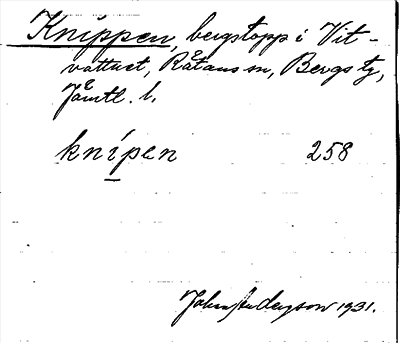 Knippen, bergstopp i Vit-
vattnet, Råtans sn, Bergs tg,
Jämtl. l.
knípen 258
John Anderson 1931.